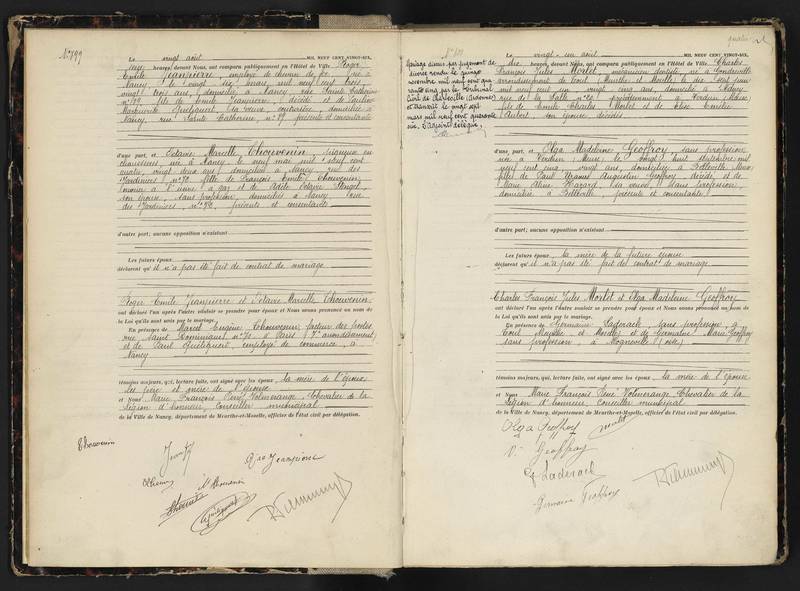 N° 799
Le vingt août MIL NEUF CENT VINGT-SIX,
heures, devant Nous, ont comparu publiquement en l'Hôtel de Ville Roger
Emile Jeanpierre, employé de chemin de fer, né à
Nancy, le vingt six mars mil neuf cent trois,
vingt trois ans, domicilié à Nancy, rue Sainte Catherine
fils de Emile Jeanpierre, décédé et de
Marguerite sa veuve, domiciliée à
Nancy, rue Sainte Catherine, n° 19, présente et consentante
d'une part, et Octavie Marcelle Chouvenin, piqueuse en
chaussures, née à Nancy, le neuf mai mil neuf cent
quatre, vingt deux ans, domiciliée à Nancy, rue des
Jardiniers, n° 70, fille de François Emile Chouvenin,
ouvrier à l'usine à gaz et de Adèle Octavie Stengel,
son épouse, sans profession, domiciliés à Nancy, rue
des Jardiniers, n° 70, présents et consentants
d'autre part; aucune opposition n'existant
Les futurs époux
déclarent qu'il n'a pas été fait de contrat de mariage
Roger Emile Jeanpierre et Octavie Marcelle Chouvenin
ont déclaré l'un après l'autre vouloir se prendre pour époux et Nous avons prononcé au nom de
la Loi qu'ils sont unis par le mariage.
En présence de Marcel Eugène Chouvenin, facteur des postes
rue Saint Dominique, à Paris (7e arrondissement)
et de Paul employé de commerce, à
Nancy
témoins majeurs, qui, lecture faite, ont signé avec les époux, la mère de l'époux,
les père et mère de l'épouse
et Nous Marie François René Volmerange, Chevalier de la
Légion d'honneur, Conseiller municipal
de la Ville de Nancy, département de Meurthe-et-Moselle, officier de l'état civil par délégation.
Chouvenin
Jeanpierre
Mariage dissous par jugement de
divorce rendu le quinze
novembre mil neuf cent qua-
rante cinq par le Tribunal
Civil de Charleville (Ardennes)
et transcrit le vingt sept
mars mil neuf cent quarante
six. L'adjoint délégué,
Le vingt-un août MIL NEUF CENT VINGT-SIX,
dix heures, devant Nous, ont comparu publiquement en l'Hôtel de Ville Charles
François Jules Morlet, mécanicien dentiste, né à Gondreville
arrondissement de Toul (Meurthe et Moselle) le dix sept
mil neuf cent un, vingt cinq ans, domicilié à Nancy,
rue de la Salle, précédemment à Verdun (Meuse)
fils de Emile Charles Morlet et de Elise Emilie
Aubert, son épouse, décédés
d'une part, et Olga Madeleine Geoffroy, sans profession,
née à Verdun (Meuse) le vingt huit septembre mil
neuf cent cinq, vingt ans, domiciliée à Belleville (Meuse)
fille de Paul Augustin Geoffroy, décédé, et de
Marie Aline Hazard, sa veuve, sans profession,
domiciliée à Belleville, présente et consentante
d'autre part; aucune opposition n'existant
Les futurs époux, la mère de la future épouse
déclarent qu'il n'a pas été fait de contrat de mariage
Charles François Jules Morlet et Olga Madeleine Geoffroy
ont déclaré l'un après l'autre vouloir se prendre pour époux et Nous avons prononcé au nom de
la Loi qu'ils sont unis par le mariage.
En présence de Germaine Laderach, sans profession, à
Toul (Meurthe et Moselle) et de Germaine Marie Geoffroy
sans profession, à Mogneville (Oise)
témoins majeurs, qui, lecture faite, ont signé avec les époux, la mère de l'épouse
et Nous Marie François René Volmerange, Chevalier de la
Légion d'honneur, Conseiller municipal
de la Ville de Nancy, département de Meurthe-et-Moselle, officier de l'état civil par délégation.
Olga Geoffroy Morlet
Vve Geoffroy
G Laderach
Germaine Geoffroy